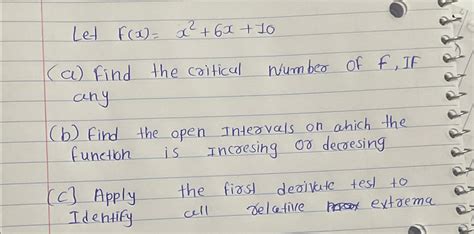 Let f(x) = x² + 6x + 10
(a) Find the critical Number of f, IF
any
(b) Find the open Intervals on ahich the
function is Incresing or decresing
(c) Apply the first derivate test to
Identify all relative extrema